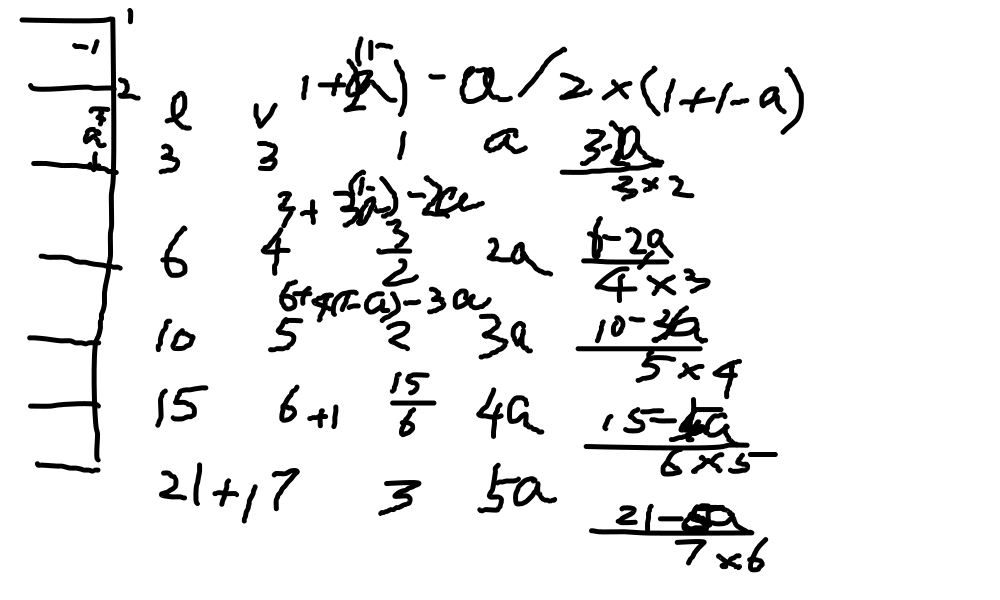 1
-1
2
l v 1+(1-a)-a/2×(1+1-a)
a
3 3 1 a 3-a/3×2
3+3(1-a)-2a
6 4 3/2 2a 6-2a/4×3
6+4(1-a)-3a
10 5 2 3a 10-3a/5×4
15 6+1 15/6 4a 15-4a/6×5
21+1 7 3 5a 21-5a/7×6